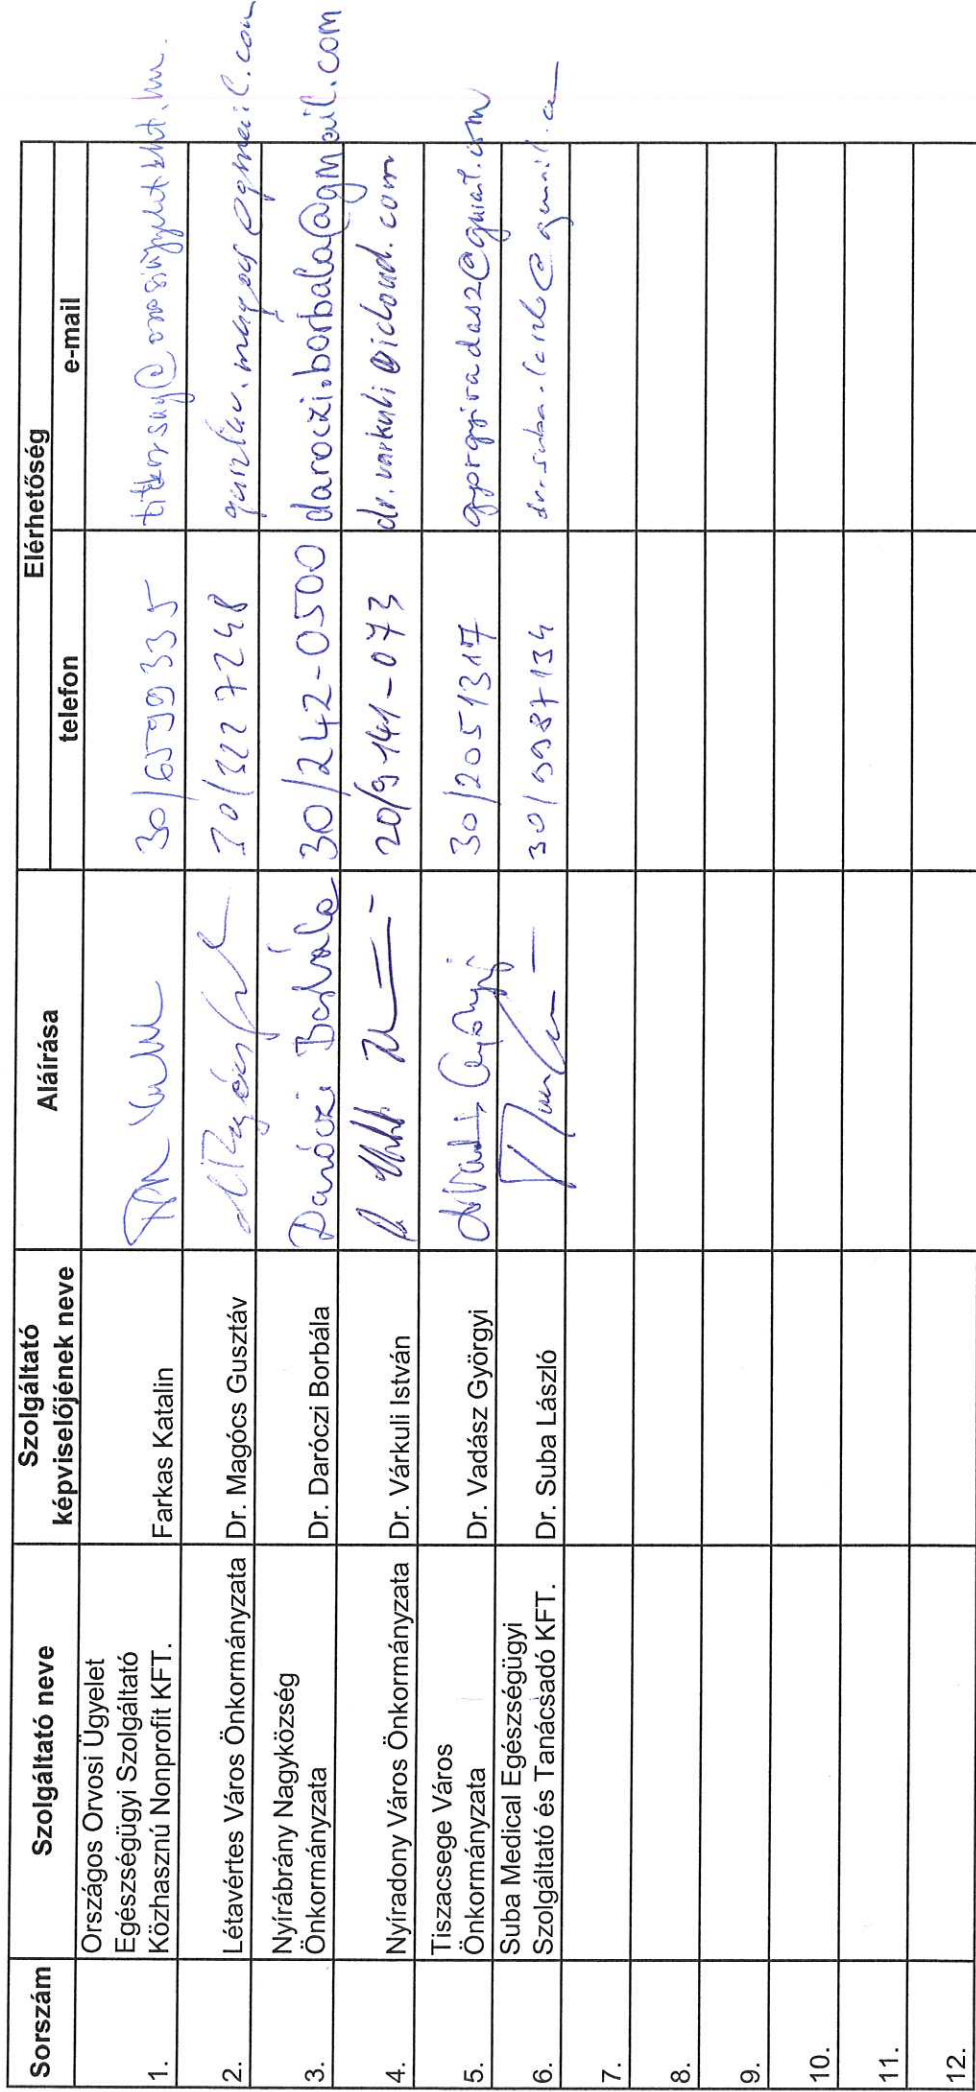 Sorszám Szolgáltató neve Szolgáltató képviselőjének neve Aláírása Elérhetőség
telefon e-mail
1. Országos Orvosi Ügyelet
Egészségügyi Szolgáltató
Közhasznú Nonprofit KFT. Farkas Katalin 30/6599335
2. Létavértes Város Önkormányzata Dr. Magócs Gusztáv
3. Nyírábrány Nagyközség
Önkormányzata Dr. Daróczi Borbála Daróczi Borbála 30/242-0500 daroczi.borbala@gmail.com
4. Nyíradony Város Önkormányzata Dr. Várkuli István 20/9141-073 dr.varkuli@icloud.com
5. Tiszacsege Város
Önkormányzata Dr. Vadász Györgyi 30/2051317
6. Suba Medical Egészségügyi
Szolgáltató és Tanácsadó KFT. Dr. Suba László 30/9987134
7.
8.
9.
10.
11.
12.